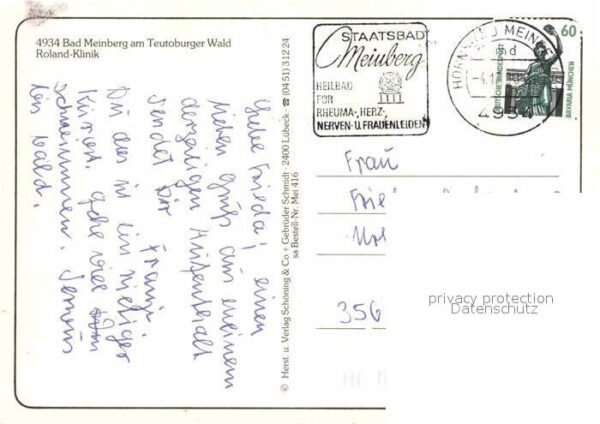 4934 Bad Meinberg am Teutoburger Wald
Roland-Klinik
STAATSBAD
Meinberg
HEILBAD
FÜR
RHEUMA-, HERZ-,
NERVEN- U. FRAUENLEIDEN
HORN-BAD MEINB
4934
60
DEUTSCHE BUNDESPOST
BAVARIA MÜNCHEN
Liebe Frieda, einen
lieben Gruß aus meinem
derzeitigen Aufenthalt
sendet Dir Franz.
Du dies ist ein riesiger
Kurort, gehe viel
schwimmen. Tennis
bin bald.
© Herst. u. Verlag Schöning & Co + Gebrüder Schmidt · 2400 Lübeck · ☎ (0451) 31224
sa Bestell-Nr. Mei 416
Frau
Frie
356
privacy protection
Datenschutz